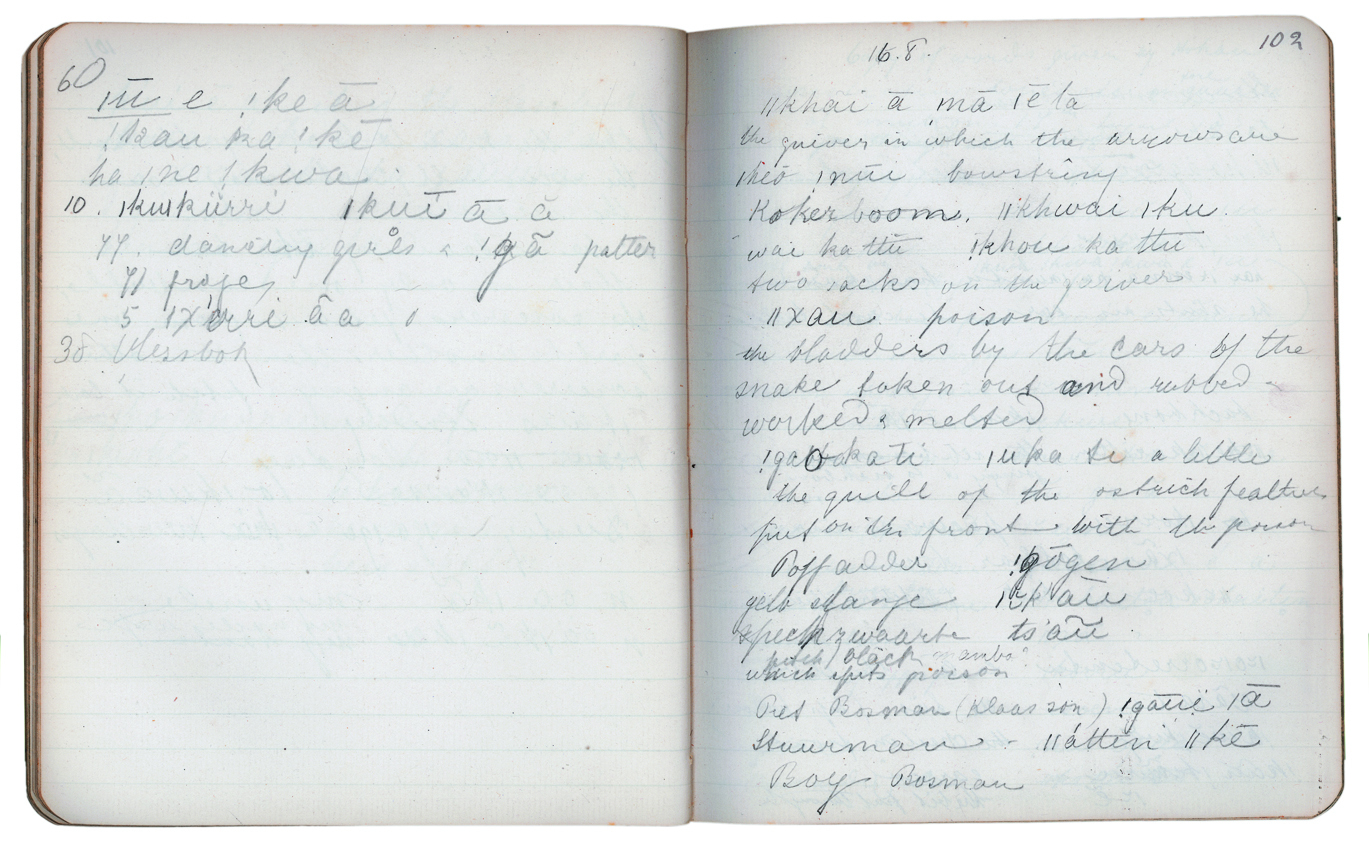 60
ǀūī e ǃke ā
ǃkau ka ǃkē
ha ǀne ǀkwa
10. ǀkuǀkürri ǀkuī ā ā
77. dancing girls & ǃgā patter
71 froges
5 ǀxerri āa
38 Vlessbok
16.8.
102
ǁkhai ā mā ǀē ta
the quiver in which the arrows are
ǀheo ǃnūī bowstring
Kokerboom. ǁkhwai ǀku.
wai ka ttū ǃkhou ka ttū
two sacks on the quiver
ǁxau poison
the bladders by the ears of the
snake taken out and rubbed
worked & melted
ǀuka te a little
the quill of the ostrich feather
put on the front with the poison
Poff adder ǃgōgen
gelb slange ǀk'āū
speckzwaarte ts'āū
pitch black mamba
which spits poison
Piet Bosman (Klaas son) ǃgāūë ǀā
Stuurman - ǁátten ǁkē
Boy Bosman